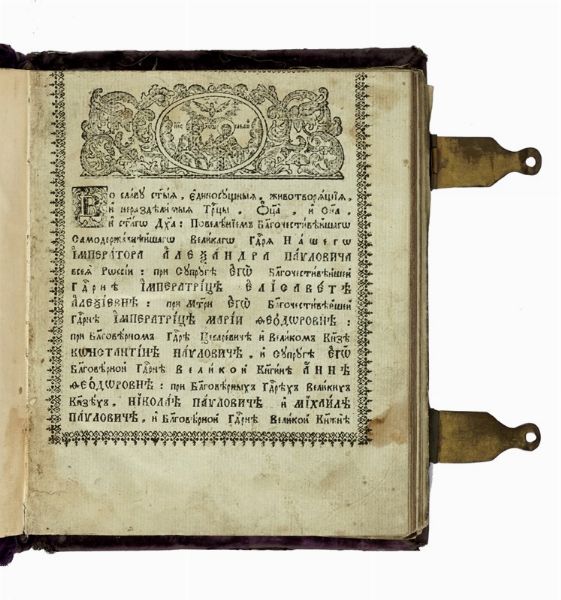 Во славу ст҃ыѧ, єдиносꙋщныѧ, животворѧщїѧ,
и нераздѣлимыѧ Трⷪ҇цы, Ѻц҃а, и҆ Сн҃а,
и҆ ст҃агѡ Дх҃а: Повелѣнїемъ Благочестивѣйшагѡ
Самодержавнѣйшагѡ Великагѡ Гдⷭ҇рѧ НАШЕГѠ
ІМПЕРАТОРА АЛЕѮАНДРА ПАѴЛОВИЧА
всеѧ Рѡссїи: при Сꙋпрꙋгѣ ЕГѠ Благочестивѣйшей
ГДⷭ҇РНѢ ІМПЕРАТРИЦѢ ЕЛІСАВЕТѢ
АЛЕѮІЕВНѢ: при Мт҃ри ЕГѠ Благочестивѣйшей
Гдⷭ҇рнѣ ІМПЕРАТРИЦѢ МАРІИ ѲЕОДѠРОВНѢ:
при Благовѣрномъ Гдⷭ҇рѣ Цесаревичѣ и҆ Великомъ Кн҃зѣ
КѠНСТАНТІНѢ ПАѴЛОВИЧѢ, и҆ Сꙋпрꙋгѣ ЕГѠ
Благовѣрной Гдⷭ҇рнѣ Великой Кн҃гинѣ АННѢ
ѲЕОДѠРОВНѢ: при Благовѣрныхъ Гдⷭ҇рѣхъ Великихъ
Кн҃зѣхъ, НІКОЛАѢ ПАѴЛОВИЧѢ, и҆ МІХАИЛѢ
ПАѴЛОВИЧѢ, и҆ Благовѣрной Гдⷭ҇рнѣ Великой Кн҃жнѣ